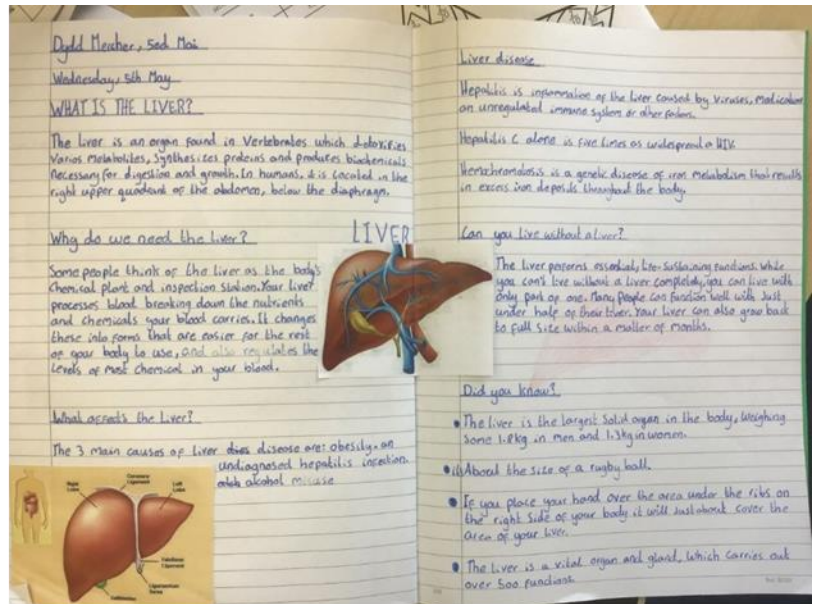 Dydd Mercher, 5ed Mai
Wednesday, 5th May
WHAT IS THE LIVER?
The liver is an organ found in Vertebrates which detoxifies
Varios Metabolites, Synthesizes proteins and produces biochemicals
necessary for digestion and growth. In humans, it is located in the
right upper quadrant of the abdomen, below the diaphragm.
Why do we need the liver?
Some people think of the liver as the body's
Chemical plant and inspection station. Your liver
processes blood breaking down the nutrients
and chemicals your blood carries. It changes
these into forms that are easier for the rest
of your body to use, and also regulates the
levels of most chemical in your blood.
What affects the Liver?
The 3 main causes of liver disease are: obesity, an
undiagnosed hepatitis infection.
alcohol misuse
Right
Lobe
Coronary
Ligament
Left
Lobe
Falciform
Ligament
Ligamentum
Teres
Gallbladder
LIVER
Liver disease
Hepatitis is inflammation of the liver caused by Viruses, Medication
an unregulated immune system or other factors.
Hepatitis C alone is five times as widespread a HIV.
Hemochromatosis is a genetic disease of iron metabolism that results
in excess iron deposits throughout the body.
Can you live without a liver?
The liver performs essential, life-sustaining functions. While
you can't live without a liver completely, you can live with
only part of one. Many people can function well with Just
under half of their liver. Your liver can also grow back
to full size within a matter of months.
Did you know?
The liver is the largest Solid organ in the body, Weighing
Some 1.8kg in men and 1.3kg in women.
About the size of a rugby ball.
If you place your hand over the area under the ribs on
the right side of your body it will just about cover the
area of your liver.
The liver is a vital organ and gland, Which carries out
over 500 functions.